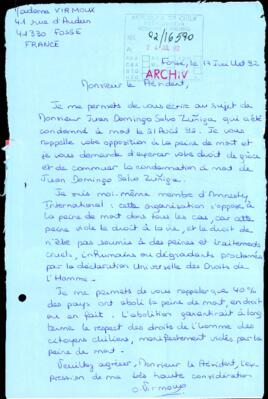 Madame VIRMOUX
41 rue d'Audun
41330 FOSSE
FRANCE
02/16590
ARCHIV
Fossé, le 17 Juillet 92
Monsieur le Président,
Je me permets de vous écrire au sujet de
Monsieur Juan Domingo Salvo Zuñiga, qui a été
condamné à mort le 31 Août 92. Je vous
rappelle votre opposition à la peine de mort et
je vous demande d'exercer votre droit de grâce
et de commuer la condamnation à mort de
Juan Domingo Salvo Zuñiga.
Je suis moi-même membre d'Amnesty
International : cette organisation s'oppose à
la peine de mort dans tous les cas, car cette
peine viole le droit à la vie, et le droit de
n'être pas soumis à des peines et traitements
cruels, inhumains ou dégradants proclamés
par la déclaration Universelle des Droits de
l'Homme.
Je me permets de vous rappeler que 40% des
pays ont aboli la peine de mort, en droit
ou en fait. L'abolition garantirait à long
terme le respect des droits de l'homme des
citoyens chiliens, manifestement violés par la
peine de mort.
Veuillez agréer, Monsieur le Président, l'ex-
pression de ma très haute considération
O. Virmoux